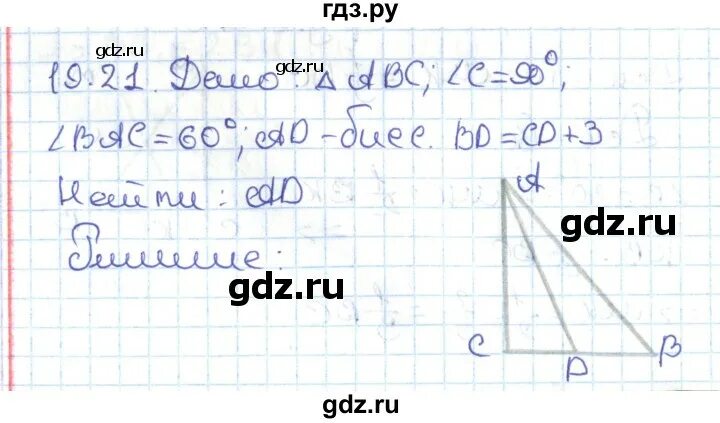 гдз.ру
gdz.ru gdz.ru
19.21. Дано: △ ABC; ∠C=90°;
∠BAC=60°; AD - бисс. BD=CD+3
Найти: AD
Решение:
gdz.ru
gdz.ru
A
C
D
B
gdz.ru